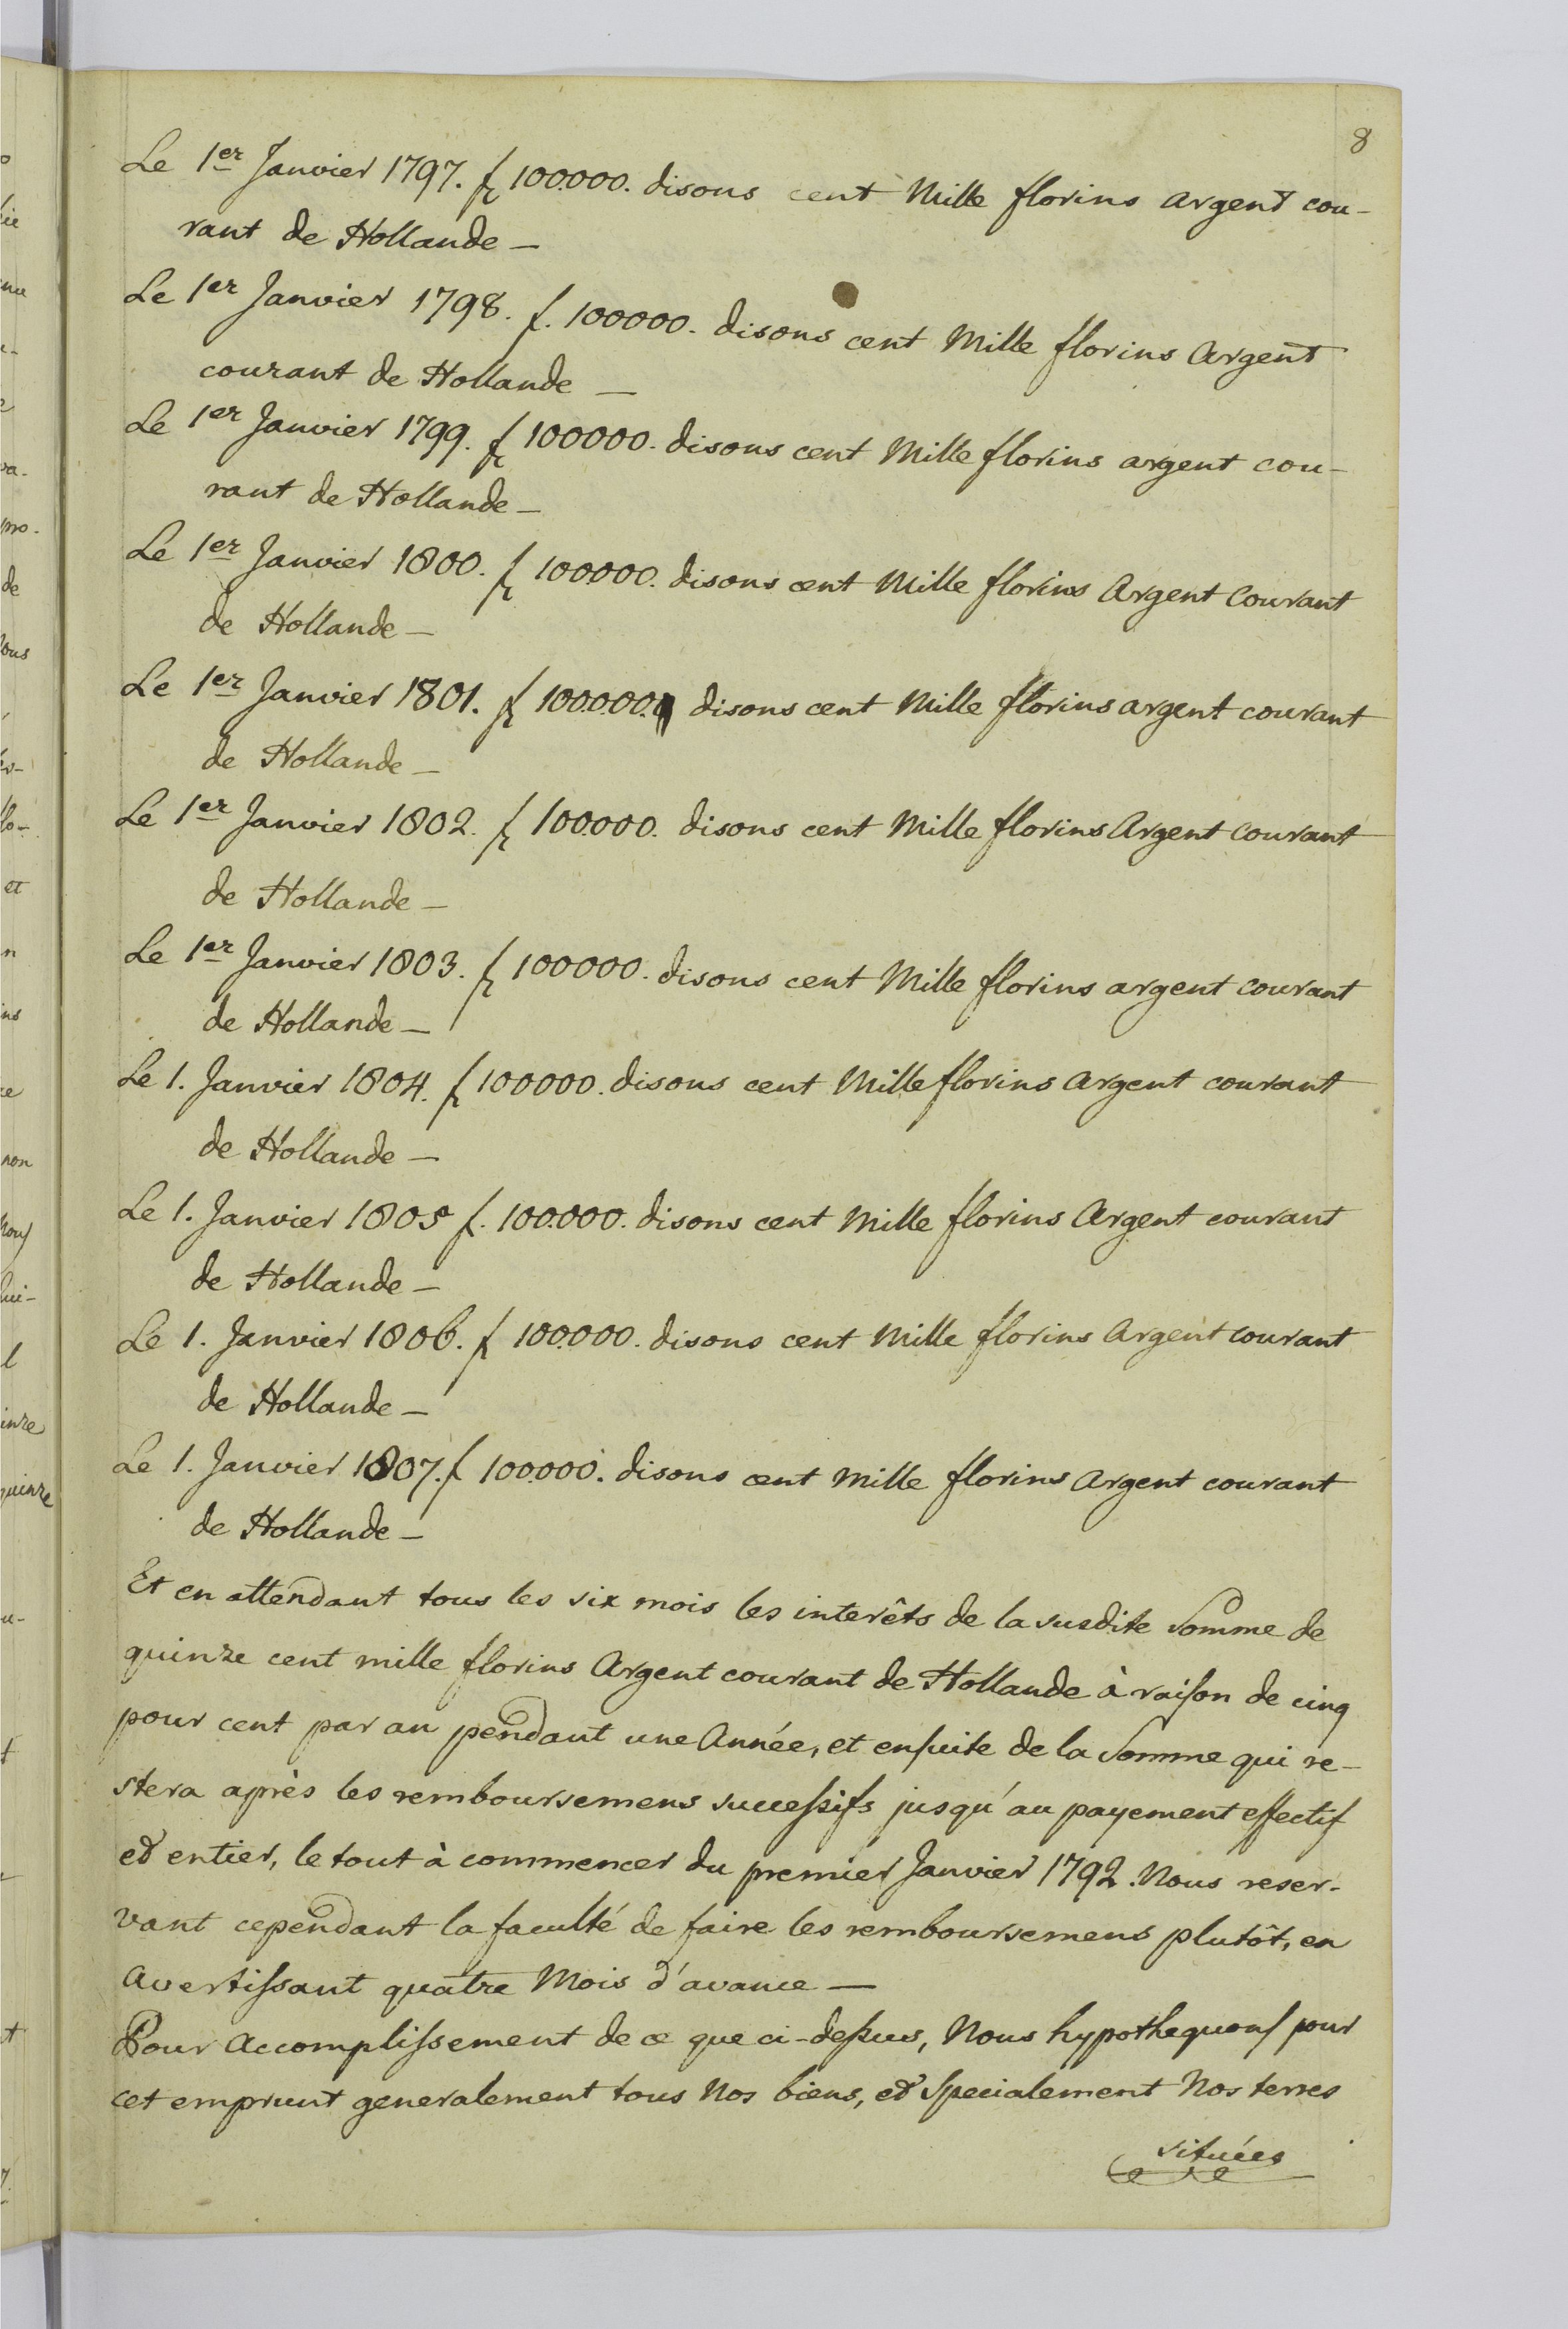 8
Le 1er Janvier 1797. f 100000. disons cent Mille florins argent cou-
rant de Hollande –
Le 1er Janvier 1798. f. 100000. disons cent Mille florins Argent
courant de Hollande –
Le 1er Janvier 1799. f 100000. disons cent Mille florins argent cou-
rant de Hollande –
Le 1er Janvier 1800. f 100000. disons cent Mille florins Argent Courant
de Hollande –
Le 1er Janvier 1801. f 100.000. disons cent Mille florins argent courant
de Hollande –
Le 1er Janvier 1802. f 100000. disons cent Mille florins Argent Courant
de Hollande –
Le 1er Janvier 1803. f 100000. disons cent Mille florins argent courant
de Hollande –
Le 1. Janvier 1804. f 100000. disons cent Mille florins Argent courant
de Hollande –
Le 1. Janvier 1805 f. 100.000. disons cent Mille florins Argent courant
de Hollande –
Le 1. Janvier 1806. f 100.000. disons cent Mille florins Argent courant
de Hollande –
Le 1. Janvier 1807. f 100.000. disons cent Mille florins Argent courant
de Hollande –
Et en attendant tous les six mois les interêts de la susdite Somme de
quinze cent mille florins Argent courant de Hollande à raison de cinq
pour cent par an pendant une Année, et ensuite de la Somme qui re-
stera après les remboursemens successifs jusqu'au payement effectif
et entier, le tout à commencer du premier Janvier 1792. Nous reser-
vant cependant la faculté de faire les remboursemens plutôt, en
Avertissant quatre Mois d'avance –
Pour Accomplissement de ce que ci-dessus, Nous hypothequons pour
cet emprunt generalement tous Nos biens, et Specialement Nos terres
situées